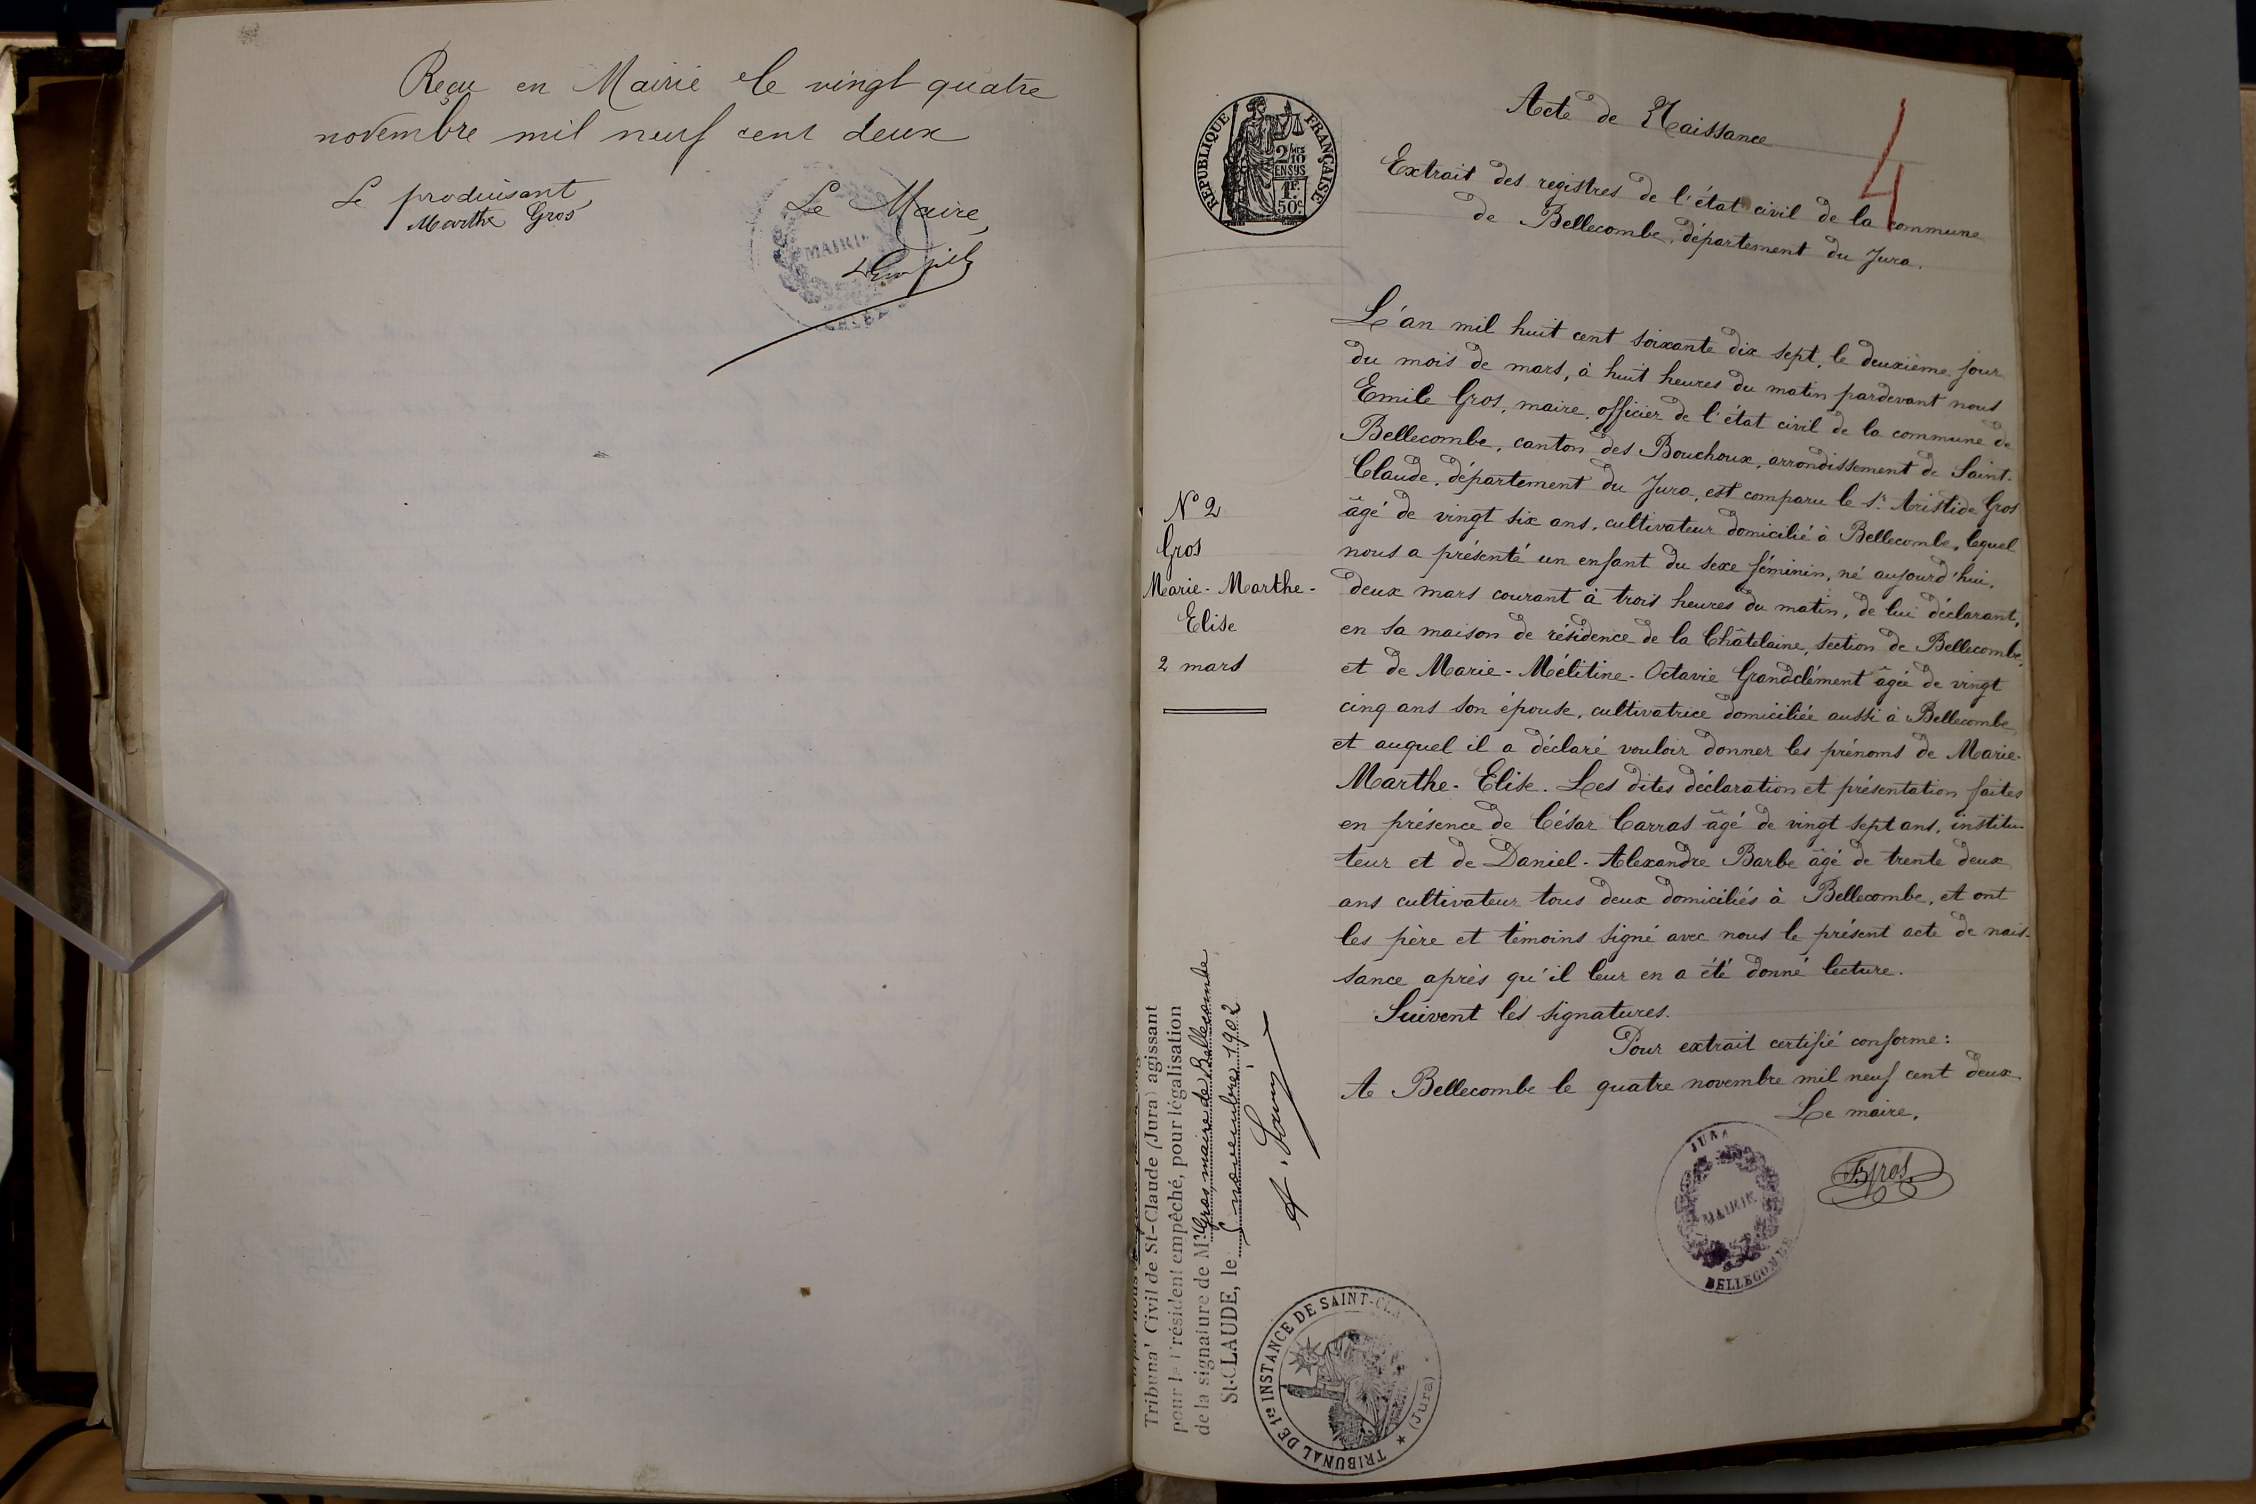 Reçu en Mairie le vingt quatre
novembre mil neuf cent deux
Le produisant,
Marthe Gros
Le Maire,
MAIRIE
4
RÉPUBLIQUE FRANÇAISE
2/10
EN SUS
1F.
50c
Acte de Naissance
Extrait des registres de l'état civil de la commune
de Bellecombe, département du Jura.
N° 2
Gros
Marie-Marthe-
Elise
2 mars
L'an mil huit cent soixante dix sept, le deuxième jour
du mois de mars, à huit heures du matin pardevant nous
Emile Gros, maire, officier de l'état civil de la commune de
Bellecombe, canton des Bouchoux, arrondissement de Saint-
Claude, département du Jura, est comparu le Sr Aristide Gros
âgé de vingt six ans, cultivateur domicilié à Bellecombe, lequel
nous a présenté un enfant du sexe féminin, né aujourd'hui,
deux mars courant à trois heures du matin, de lui déclarant,
en sa maison de résidence de la Châtelaine, section de Bellecombe,
et de Marie-Mélitine-Octavie Grandclément âgée de vingt
cinq ans son épouse, cultivatrice domiciliée aussi à Bellecombe
et auquel il a déclaré vouloir donner les prénoms de Marie-
Marthe-Elise. Les dites déclaration et présentation faites
en présence de César Carras âgé de vingt sept ans, institu-
teur et de Daniel-Alexandre Barbe âgé de trente deux
ans cultivateur tous deux domiciliés à Bellecombe, et ont
les père et témoins signé avec nous le présent acte de nais-
sance après qu'il leur en a été donné lecture.
Suivent les signatures.
Pour extrait certifié conforme:
A Bellecombe le quatre novembre mil neuf cent deux
Le maire,
Gros
JURA
MAIRIE
BELLECOMBE
Tribunal Civil de St-Claude (Jura) agissant
pour le Président empêché, pour légalisation
de la signature de Mr Gros, maire de Bellecombe
St-CLAUDE, le 5 novembre 1902
TRIBUNAL DE 1re INSTANCE DE SAINT-CLA
(Jura)